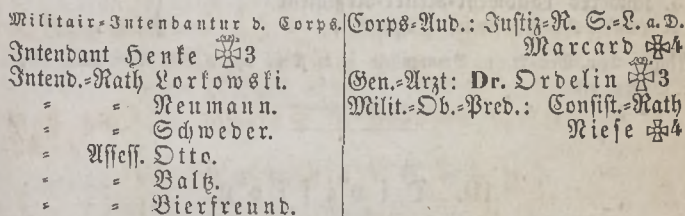 Militair-Intendantur d. Corps.
Intendant Henke 3
Intend.-Rath Lorkowski.
= = Neumann.
= = Schweder.
= Assess. Otto.
= = Baltz.
= = Bierfreund.
Corps-Aud.: Justiz-R. S.-L. a. D.
Marcard 4
Gen.-Arzt: Dr. Ordelin 3
Milit.-Ob.-Pred.: Consist.-Rath
Niese 4